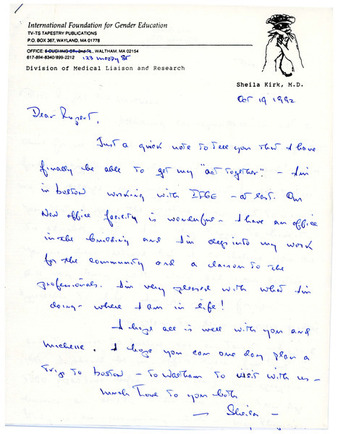 International Foundation for Gender Education
TV-TS TAPESTRY PUBLICATIONS
P.O. BOX 367, WAYLAND, MA 01778
OFFICE: WALTHAM, MA 02154
617-894-8340/899-2212 123 Moody St
Division of Medical Liaison and Research
Sheila Kirk, M.D.
Oct 19 1992
Dear Rupert,
Just a quick note to tell you that I have
finally be able to get my "act together." - I'm
in boston working with IFGE - at last. Our
New office facility is wonderful - I have an office
in the building and I'm deep into my work
for the community and a liaison to the
professionals. I'm very pleased with what I'm
doing - where I am in life!
I hope all is well with you and
Michelle. I hope you can one day plan a
trip to boston - to Waltham to visit with us -
Much Love to you both
- Sheila -